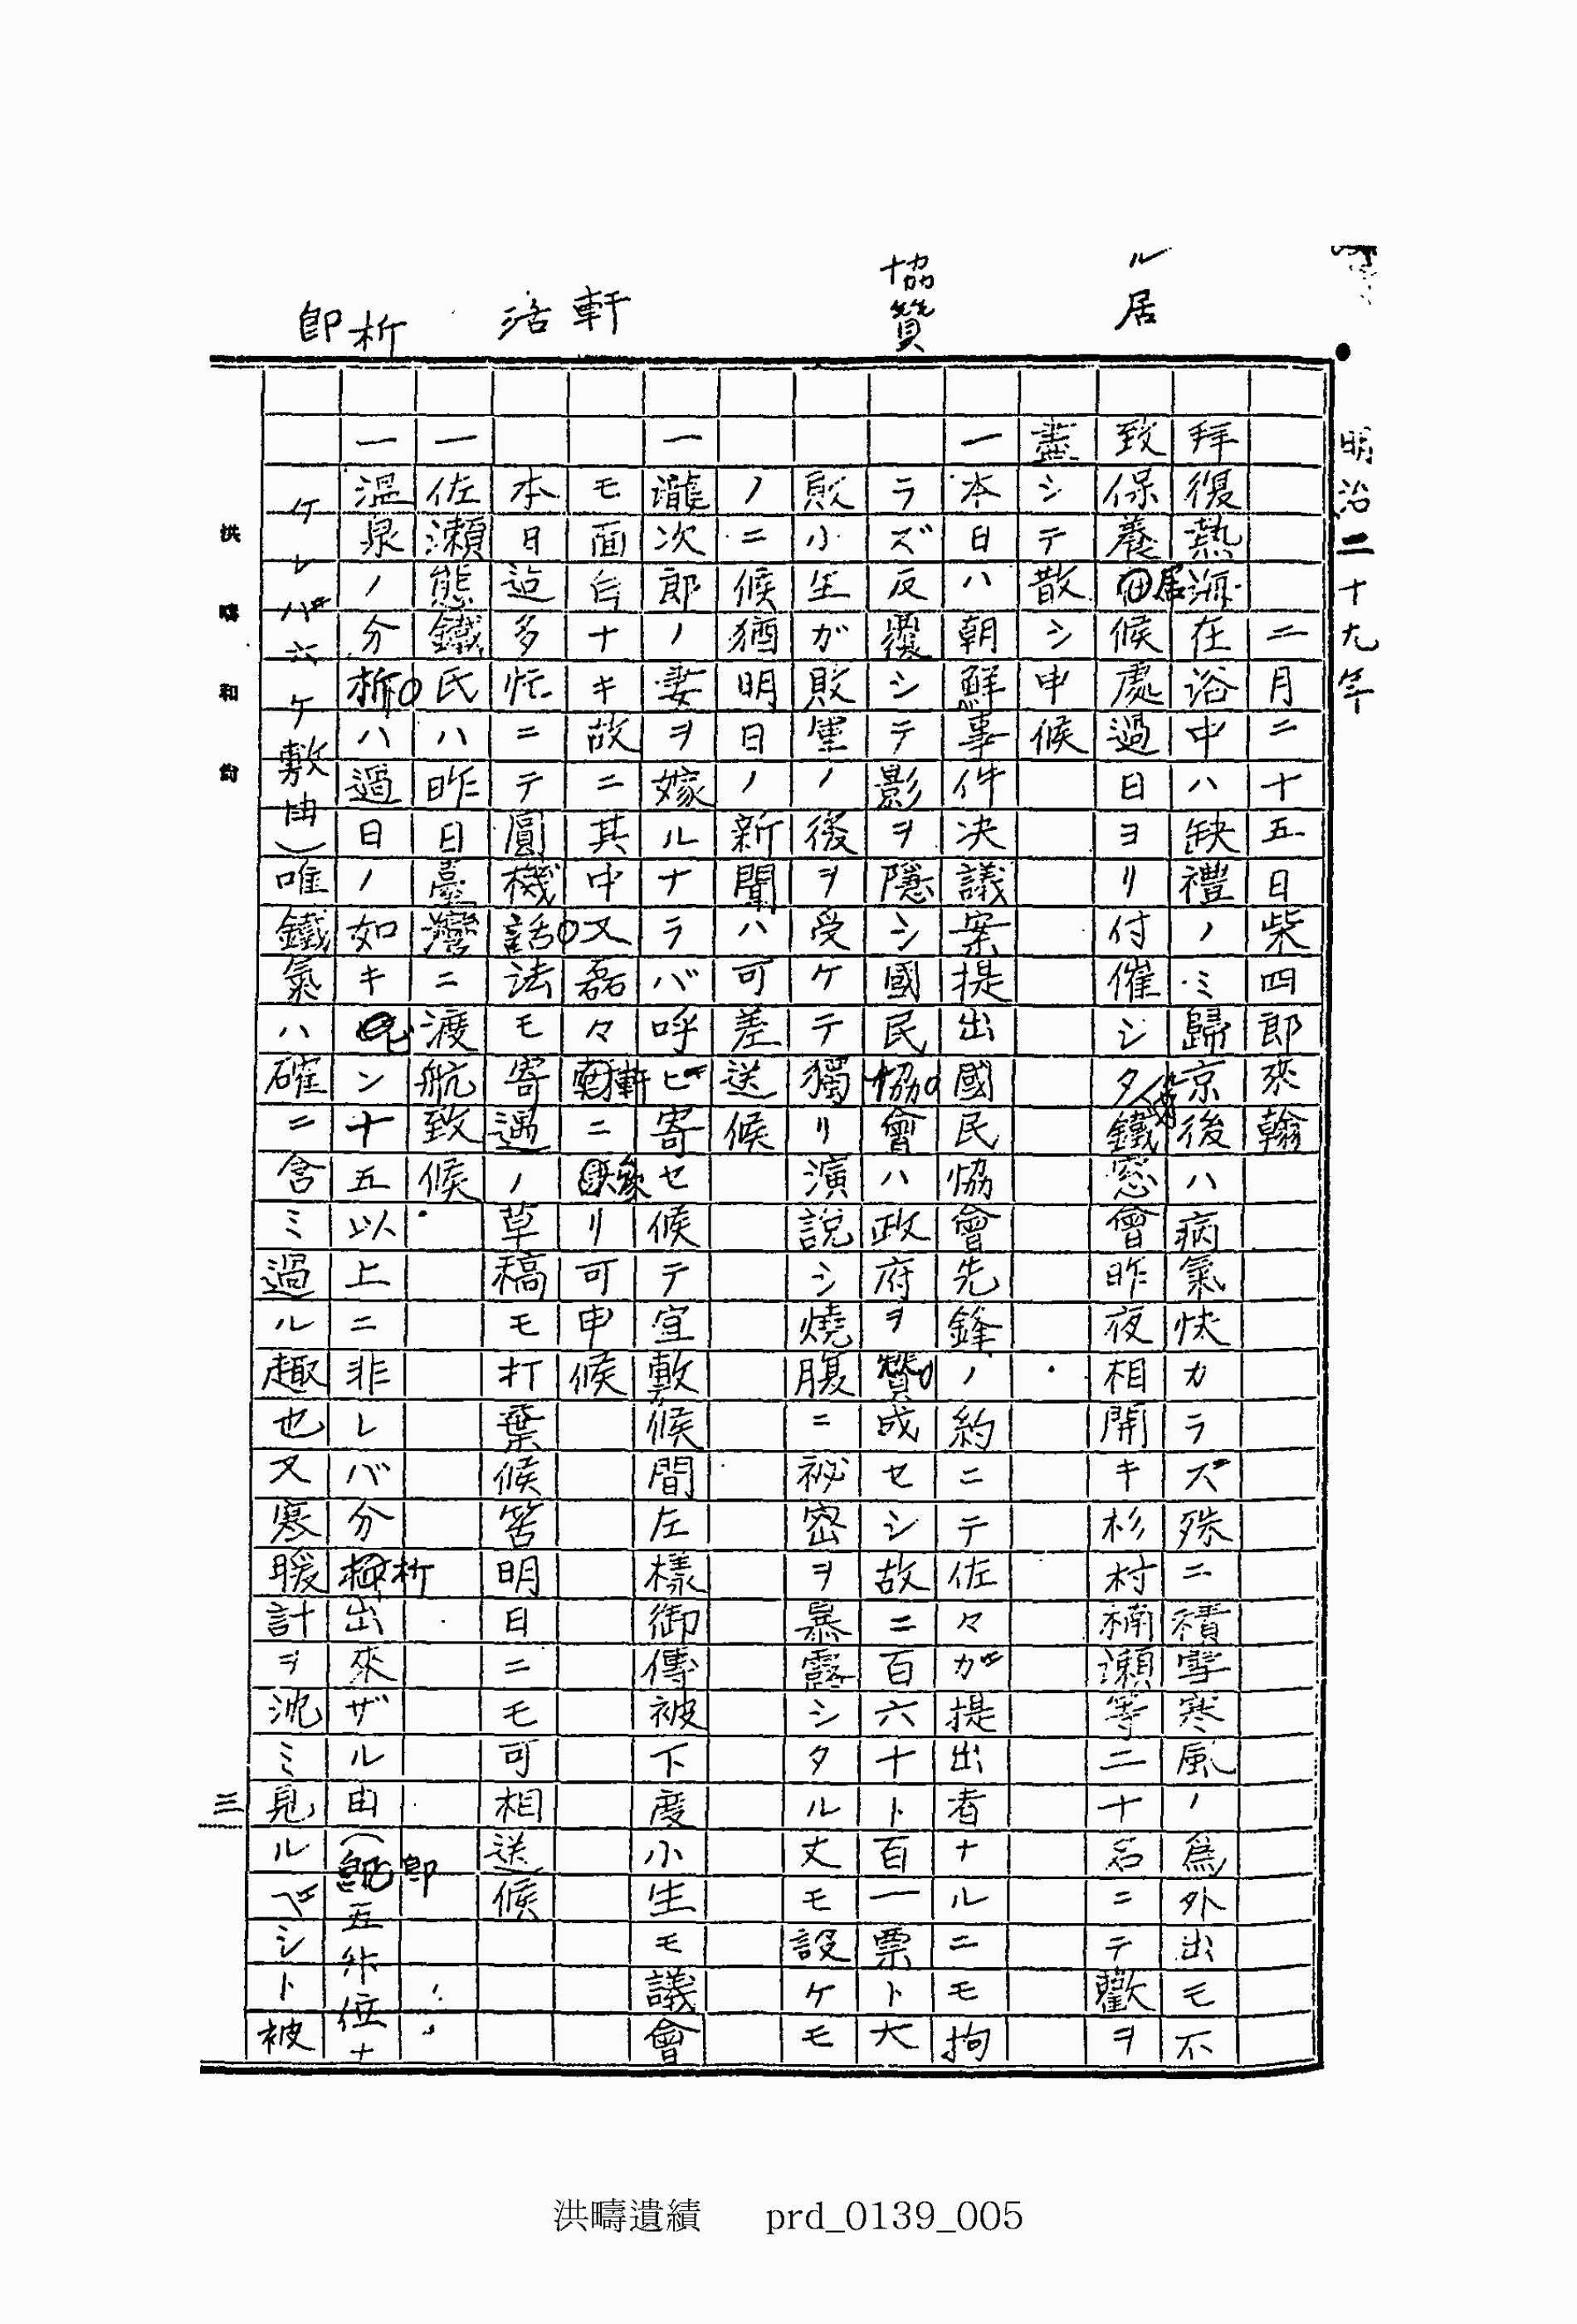 明治二十九年
ル居
協贊
軒
活
析
郎
二月二十五日柴四郎來翰
拜復熱海在浴中ハ缺禮ノミ歸京後ハ病氣快カラズ殊ニ積雪寒風ノ爲外出モ不
致保養居候處過日ヨリ付催シタル鐵窓會昨夜相開キ杉村楠瀨等二十名ニテ歡ヲ
盡シテ散シ申候
一本日ハ朝鮮事件決議案提出國民協會先鋒ノ約ニテ佐々ガ提出者ナルニモ拘
ラズ反覆シテ影ヲ隱シ國民協會ハ政府ヲ贊成セシ故ニ百六十ト百一票ト大
敗小生ガ敗軍ノ後ヲ受ケテ獨リ演說シ燒腹ニ祕密ヲ暴露シタル丈モ設ケモ
ノニ候猶明日ノ新聞ハ可差送候
一瀧次郎ノ妻ヲ嫁ルナラバ呼ビ寄セ候テ宜敷候間左樣御傳被下度小生モ議會
モ面白ナキ故ニ其中又磊々軒ニ移リ可申候
本日迄多忙ニテ圓機話法モ寄遇ノ草稿モ打棄候筈明日ニモ可相送候
一佐瀨熊鐵氏ハ昨日臺灣ニ渡航致候
一溫泉ノ分析ハ過日ノ如キ七ン十五以上ニ非レバ分析出來ザル由（即五升位ナ
ケレバ六ケ敷由）唯鐵氣ハ確ニ含ミ過ル趣也又寒暖計ヲ沈ミ見ルベシト被
洪疇和鈞
三
洪疇遺績 prd_0139_005